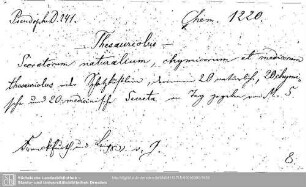 Pseudoph. D. 141.
Chem. 1220.
Thesauriolus
Secretorum naturalium, chymicorum et medicorum
thesauriolus oder Schatzkästlein, darinnen 20 natürlich, 20 chymi-
sche und 20 medicinische Secreta in Tag gegeben von M. S.
Franckfurt und Leipzig
8.
Sächsische Landesbibliothek -
Staats- und Universitätsbibliothek Dresden